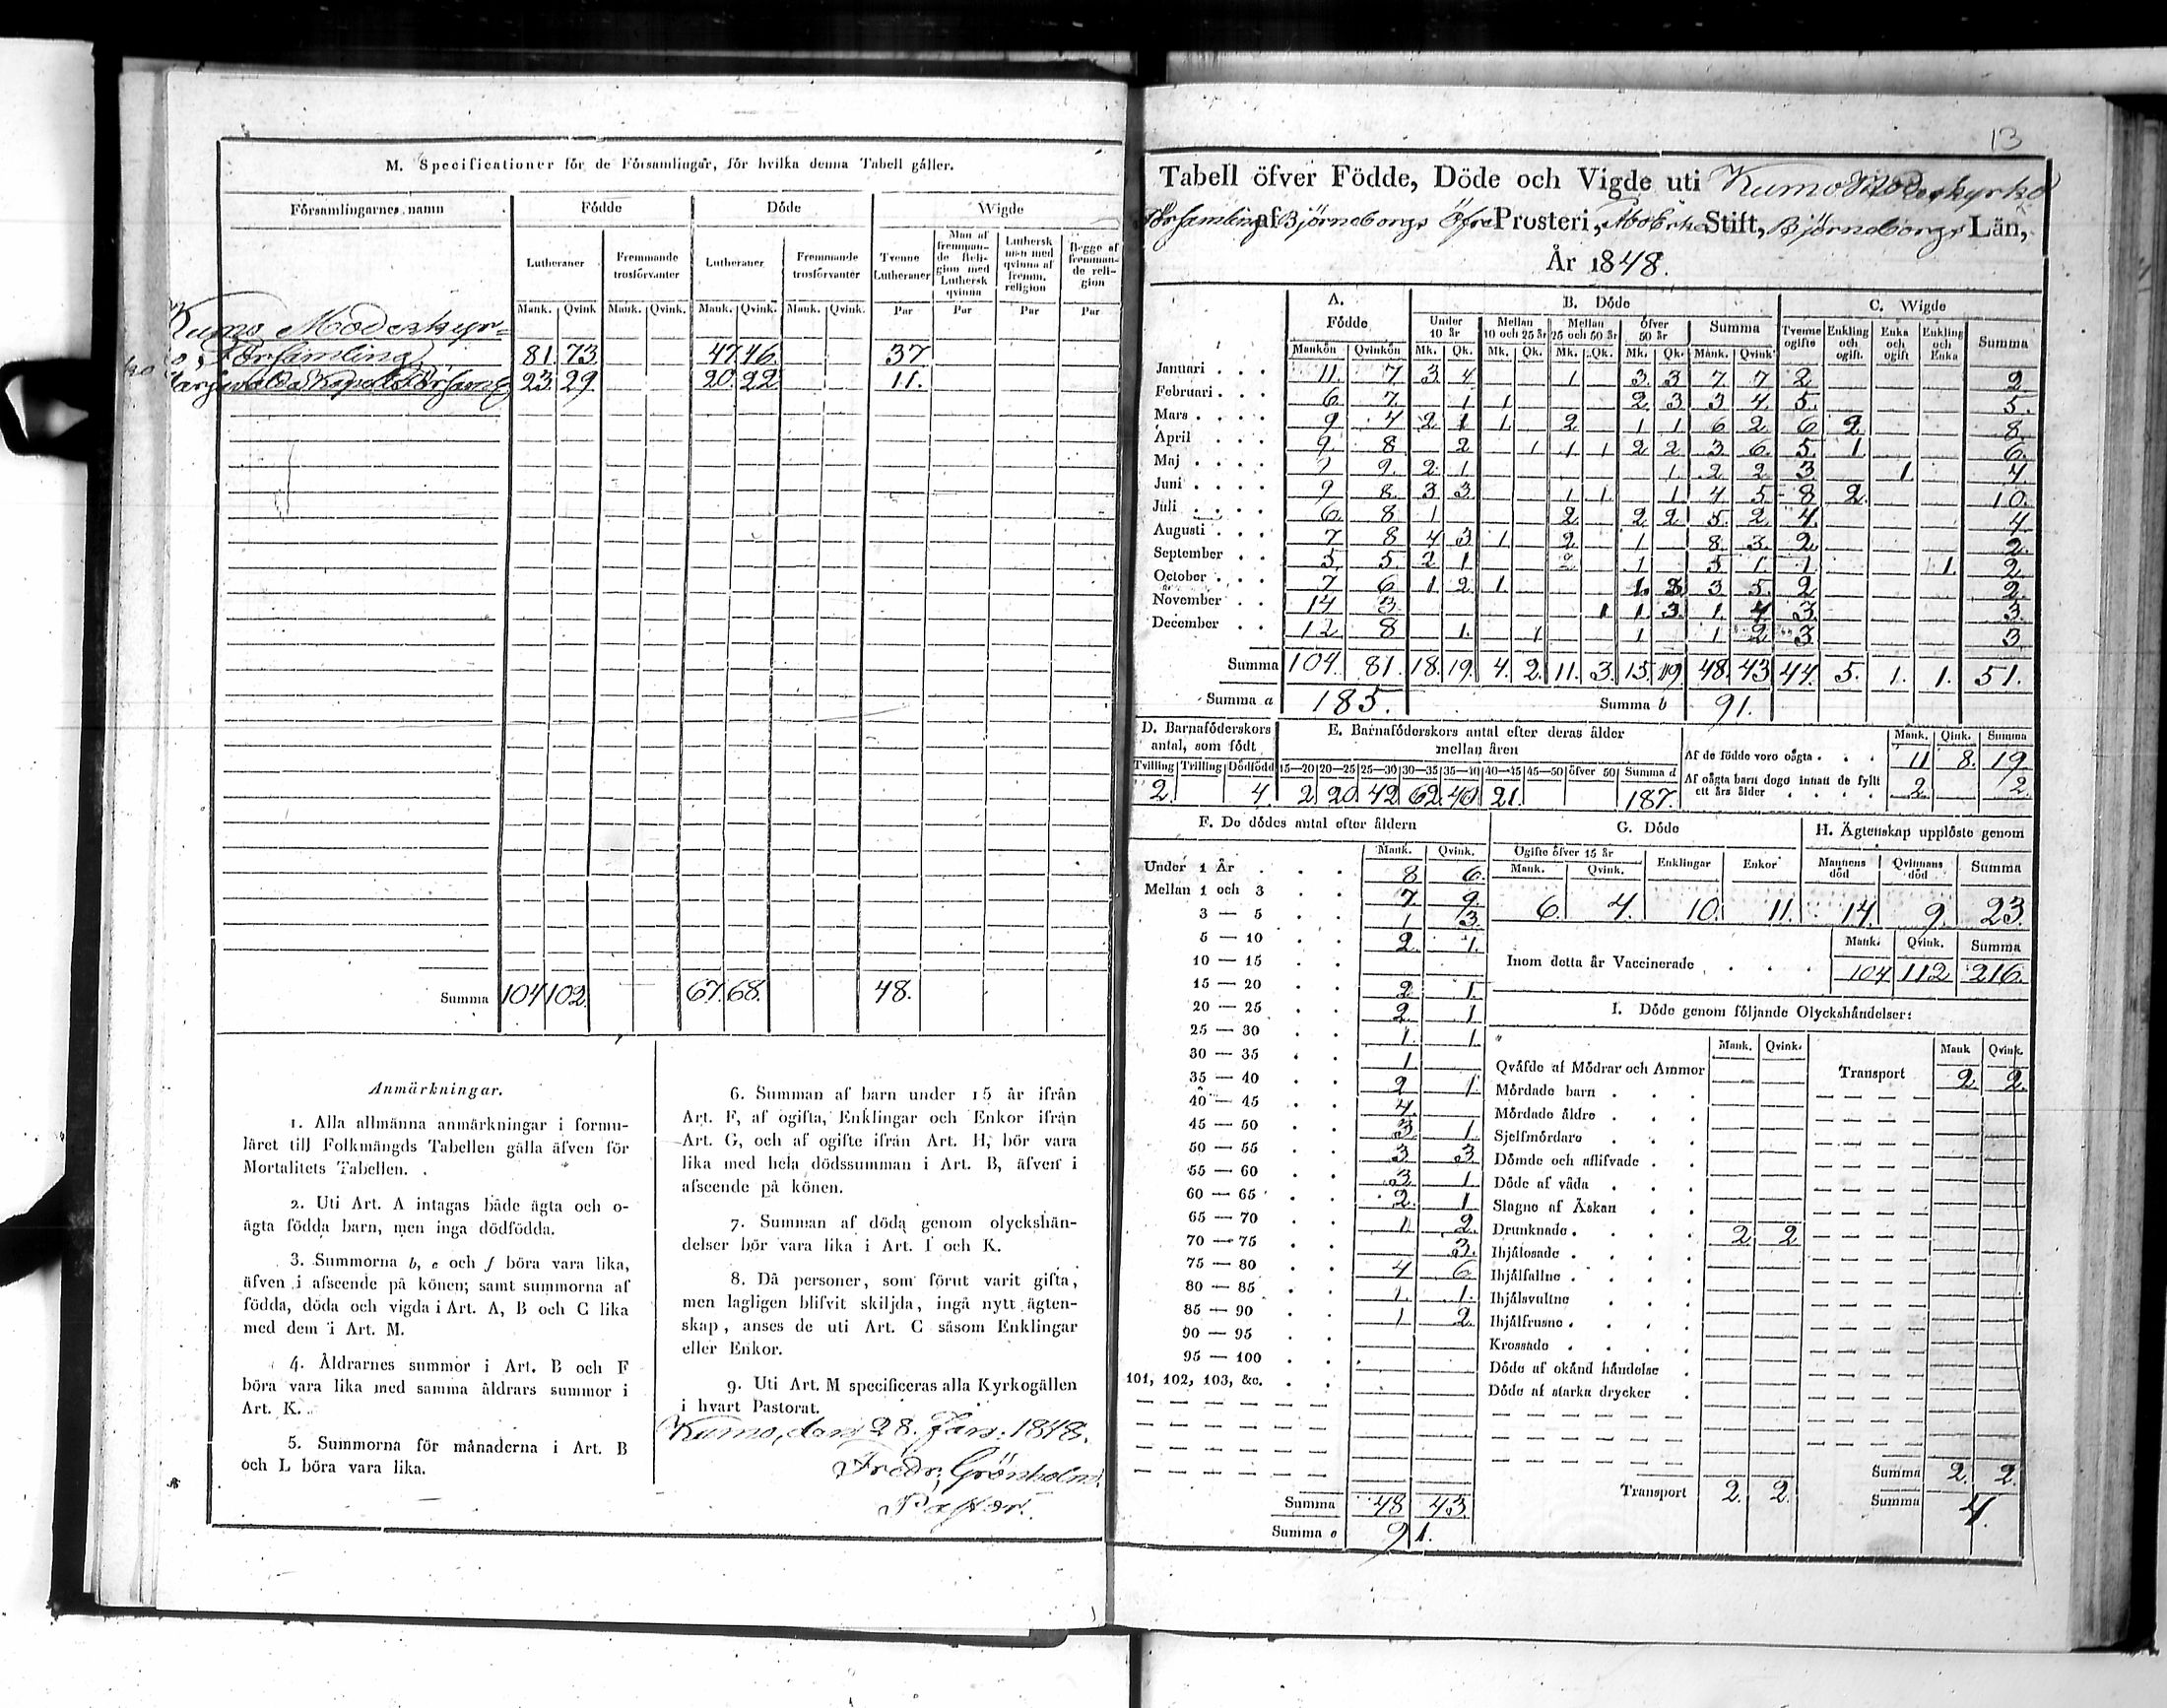 M. Specificationer för de Församlingar, för hvilka denna Tabell gäller.
Församlingarnes namn Födde Döde Wigde
Lutheraner Fremmande trosförvanter Lutheraner Fremmande trosförvanter Tvenne Lutheraner Man af fremmande Religion med Luthersk qvinna Luthersk man med qvinna af fremm. religion Begge af fremmande religion
Mank. Qvink. Mank. Qvink. Mank. Qvink. Mank. Qvink. Par Par Par Par
Kumo Moderkyr=
ko Församling 81. 73. 47. 46. 37
Kapells Församlg 23. 29. 20. 22 11.
Summa 104 102. 67. 68. 48.
Anmärkningar.
1. Alla allmänna anmärkningar i formu-
läret till Folkmängds Tabellen gälla äfven för
Mortalitets Tabellen.
2. Uti Art. A intagas både ägta och o-
ägta födda barn, men inga dödfödda.
3. Summorna b, e och f böra vara lika,
äfven i afseende på könen; samt summorna af
födda, döda och vigda i Art. A, B och C lika
med dem i Art. M.
4. Åldrarnes summor i Art. B och F
böra vara lika med samma åldrars summor i
Art. K.
5. Summorna för månaderna i Art. B
och L böra vara lika.
6. Summan af barn under 15 år ifrån
Art. F, af ogifta, Enklingar och Enkor ifrån
Art. G, och af ogifte ifrån Art. H, bör vara
lika med hela dödssumman i Art. B, äfven i
afseende på könen.
7. Summan af döda genom olyckshän-
delser bör vara lika i Art. I och K.
8. Då personer, som förut varit gifta,
men lagligen blifvit skiljda, ingå nytt ägten-
skap, anses de uti Art. C såsom Enklingar
eller Enkor.
9. Uti Art. M specificeras alla Kyrkogällen
i hvart Pastorat.
Kumo, den 28. Jan. 1848.
Fredr. Grönholm.
Pastor.
13
Tabell öfver Födde, Döde och Vigde uti Kumo Moderkyrko
Församling af Björneborgs Öfre Prosteri, Åbo Erke Stift, Björneborgs Län,
År 1848.
A. Födde B. Döde C. Wigde
Under 10 år Mellan 10 och 25 år Mellan 25 och 50 år öfver 50 år Summa Tvenne ogifte Enkling och ogift. Enka och ogift Enkling och Enka Summa
Mankön Qvinkön Mk. Qk. Mk. Qk. Mk. Qk. Mk. Qk. Mank. Qvink
Januari 11. 7 3. 4 1 3. 3 7 7 2 2
Februari 6. 7. 1 1 2. 3 3 4. 5. 5.
Mars 9 4 2 1 1. 2 1 1 6 2 6 2 8.
April 9. 8 2 1 1 1 2 2 3 6. 5. 1. 6.
Maj 9. 2. 1 1 2 2 3. 1. 4
Juni 9 8. 3 3 1 1. 1 4 5 8 2. 10.
Juli 6 8 1 2. 2 2 5. 2 4. 4
Augusti 7 8 4 3 1 2 1 8 3. 2 2.
September 5. 5. 2 1 2 1 5 1. 1 1. 2
October 7 6 1 2 1. 1. 3 3 5. 2 2.
November 14 3 1 1. 3. 1. 4 3. 3.
December 12 8 1. 1 1 1 2 3 3.
Summa 104. 81. 18. 19. 4. 2. 11. 3. 15. 19. 48. 43 44. 5. 1. 1. 51.
Summa a 185. Summa b 91.
D. Barnaföderskors antal, som födt
Tvilling Trilling Dödfödd
2. 4.
E. Barnaföderskors antal efter deras ålder mellan åren
15—20 20—25 25—30 30—35 35—40 40—45 45—50 öfver 50 Summa d
2 20 42 62. 40 21. 187.
Mank. Qink. Summa
Af de födde voro oägta 11 8. 19
Af oägta barn dogo innan de fyllt ett års ålder 2 2.
F. De dödes antal efter åldern
Mank. Qvink.
Under 1 År 8 6.
Mellan 1 och 3 7. 9.
3 — 5 1 3.
5 — 10 2. 1.
10 — 15
15 — 20 2. 1.
20 — 25 2. 1
25 — 30 1. 1.
30 — 35 1
35 — 40 2 1.
40 — 45 4.
45 — 50 3 1
50 — 55 3 3.
55 — 60 3 1.
60 — 65 2. 1
65 — 70 1 2.
70 — 75 3.
75 — 80 4 6
80 — 85 1. 1.
85 — 90 1 2.
90 — 95
95 — 100
101, 102, 103, &c.
Summa 48 43.
Summa e 91.
G. Döde
Ogifte öfver 15 år Enklingar Enkor
Mank. Qvink.
6. 4. 10. 11.
H. Ägtenskap upplöste genom
Mannens död Qvinnans död Summa
14. 9. 23.
Mank. Qvink. Summa
Inom detta år Vaccinerade 104 112 216.
I. Döde genom följande Olyckshändelser:
Mank. Qvink. Mank Qvink.
Qväfde af Mödrar och Ammor
Mördade barn
Mördade äldre
Sjelfmördare
Dömde och aflifvade
Döde af våda
Slagne af Åskan
Drunknade 2 2
Ihjälosade
Ihjälfallne
Ihjälsvultne
Ihjälfrusne
Krossade
Döde af okänd händelse
Döde af starka drycker
Transport 2. 2.
Transport 2. 2.
Summa 2. 2.
Summa 4.